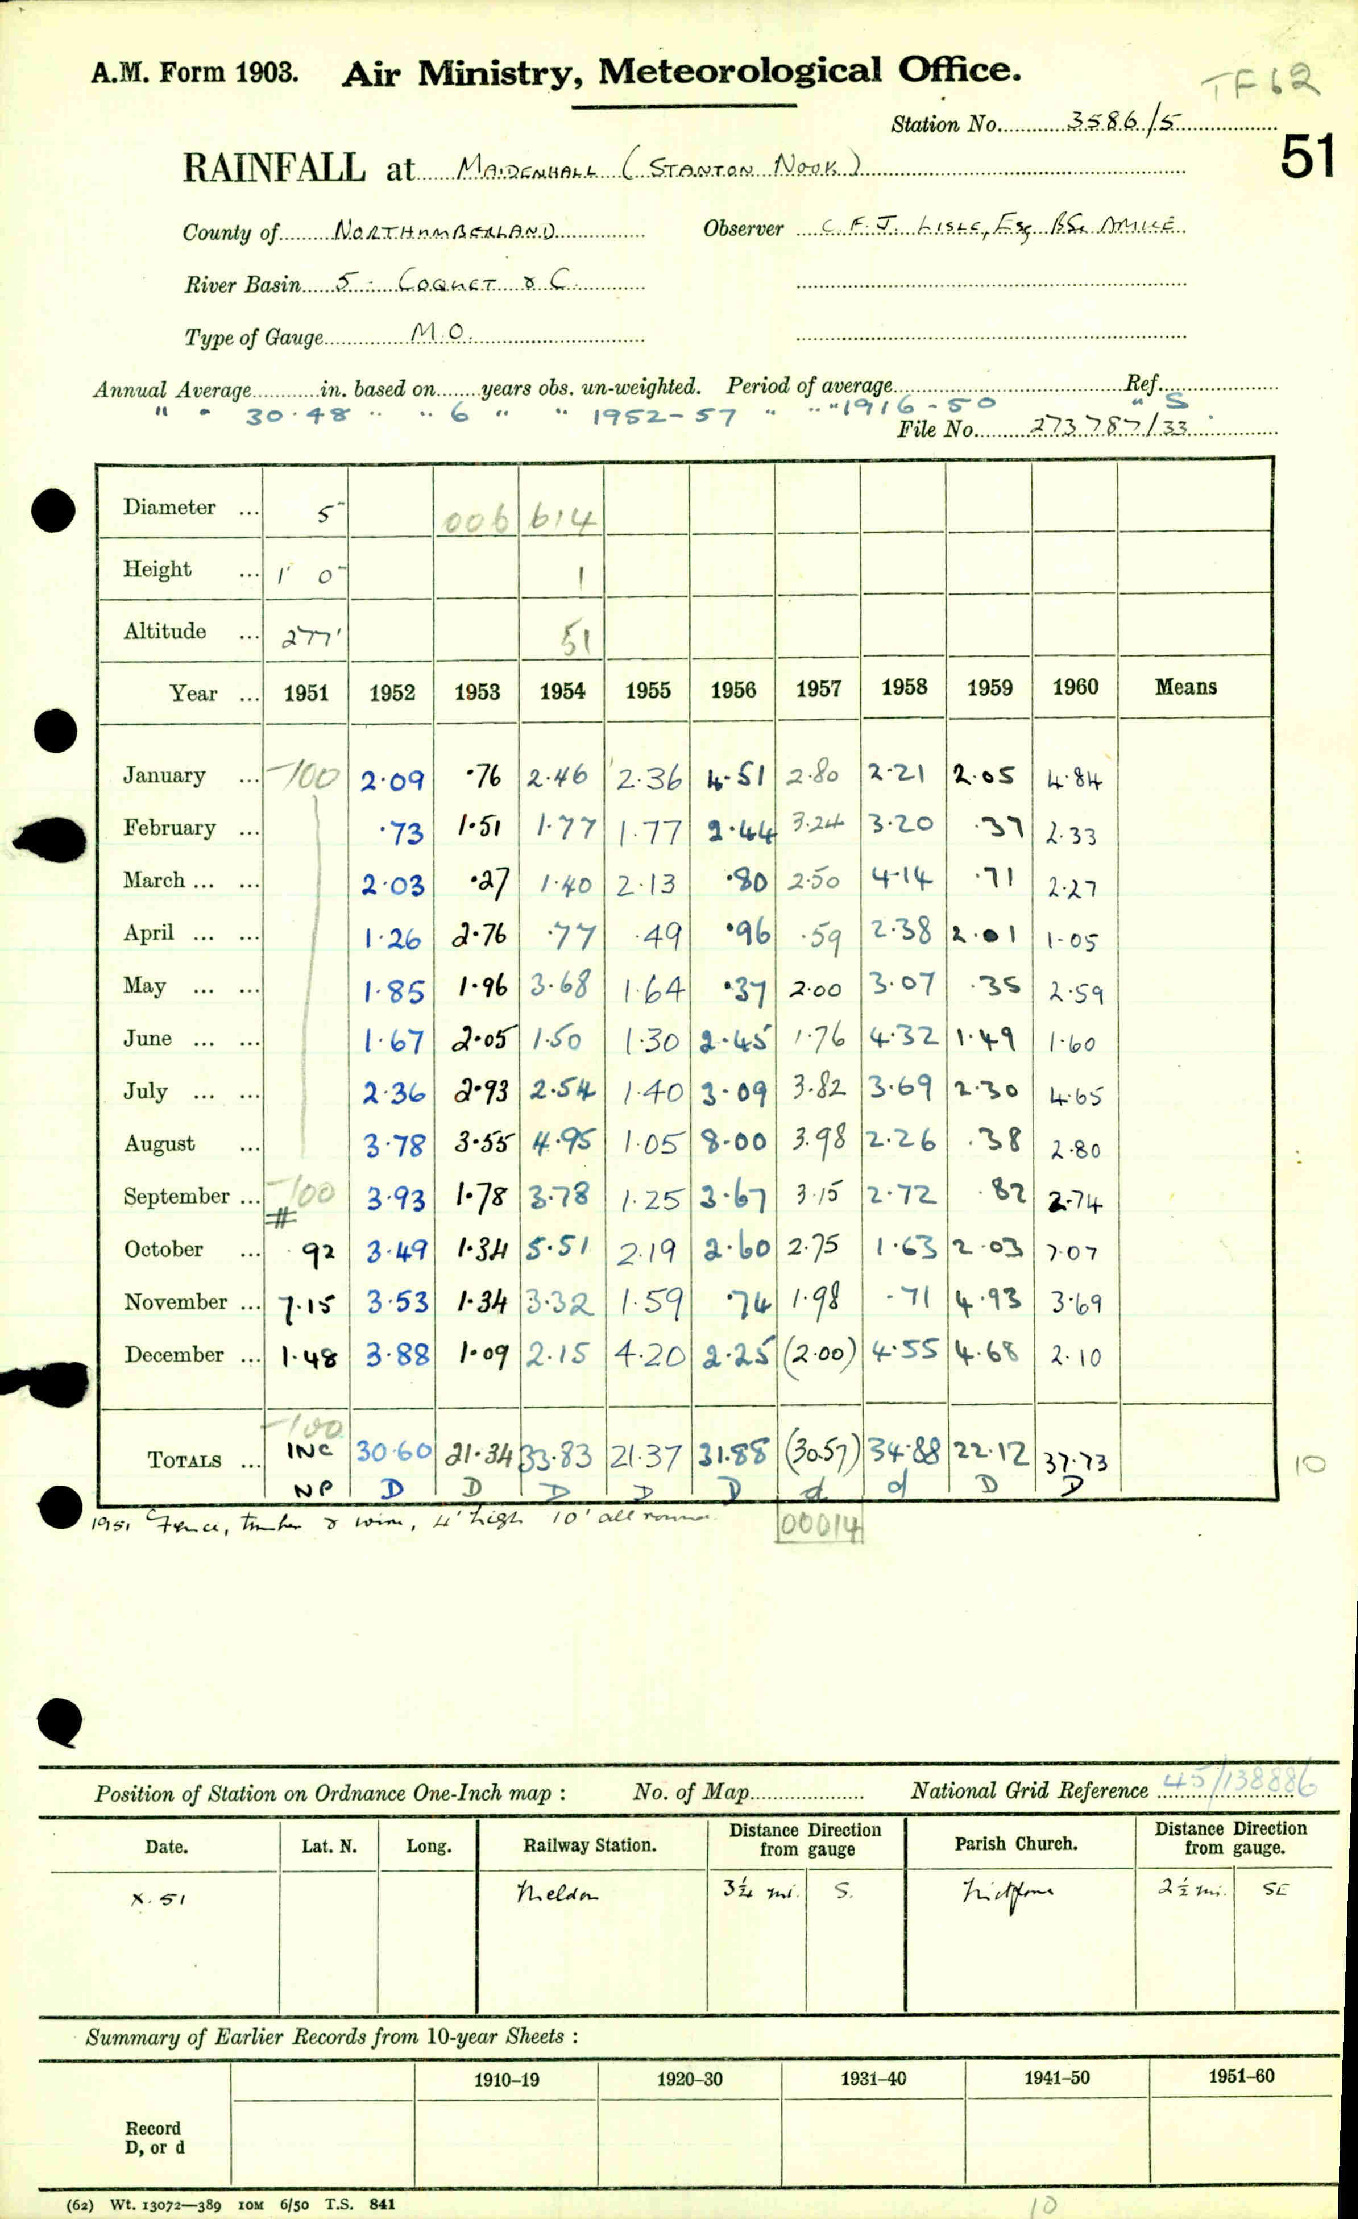 A.M. Form 1903. Air Ministry, Meteorological Office. TF62
Station No. 3586/5
51
RAINFALL at MAIDENHALL (STANTON NOOK)
County of NORTHUMBERLAND Observer C. F. J. LISLE, Esq BSc AMICE
River Basin 5. COQUET & C.
Type of Gauge M.O.
Annual Average in. based on years obs. un-weighted. Period of average Ref.
" " 30.48 " " 6 " " 1952-57 " " " 1916-50 " S
File No. 273787/33
Diameter ... 5" 006 614
Height ... 1' 0" 1
Altitude ... 277' 51
Year ... 1951 1952 1953 1954 1955 1956 1957 1958 1959 1960 Means
January ... -100 2.09 .76 2.46 2.36 4.51 2.80 2.21 2.05 4.84
February ... .73 1.51 1.77 1.77 2.44 3.24 3.20 .37 2.33
March ... ... 2.03 .27 1.40 2.13 .80 2.50 4.14 .71 2.27
April ... ... 1.26 2.76 .77 .49 .96 .59 2.38 2.01 1.05
May ... ... 1.85 1.96 3.68 1.64 .37 2.00 3.07 .35 2.59
June ... ... 1.67 2.05 1.50 1.30 2.45 1.76 4.32 1.49 1.60
July ... ... 2.36 2.93 2.54 1.40 3.09 3.82 3.69 2.30 4.65
August ... 3.78 3.55 4.95 1.05 8.00 3.98 2.26 .38 2.80
September ... -100 3.93 1.78 3.78 1.25 3.67 3.15 2.72 .82 2.74
October ... # .92 3.49 1.34 5.51 2.19 2.60 2.75 1.63 2.03 7.07
November ... 7.15 3.53 1.34 3.32 1.59 .74 1.98 .71 4.93 3.69
December ... 1.48 3.88 1.09 2.15 4.20 2.25 (2.00) 4.55 4.68 2.10
-100
TOTALS ... INC 30.60 21.34 33.83 21.37 31.88 (30.57) 34.88 22.12 37.73 10
NP D D D D D d d D D
1951 Fence, timber & wire, 4' high 10' all round. 00014
Position of Station on Ordnance One-Inch map : No. of Map National Grid Reference 45/138886
Date. Lat. N. Long. Railway Station. Distance from gauge Direction Parish Church. Distance from gauge. Direction
X. 51 Meldon 3¼ mi. S. 2½ mi. SE
Summary of Earlier Records from 10-year Sheets :
1910–19 1920–30 1931–40 1941–50 1951–60
Record
D, or d
(62) Wt. 13072—389 10M 6/50 T.S. 841 10